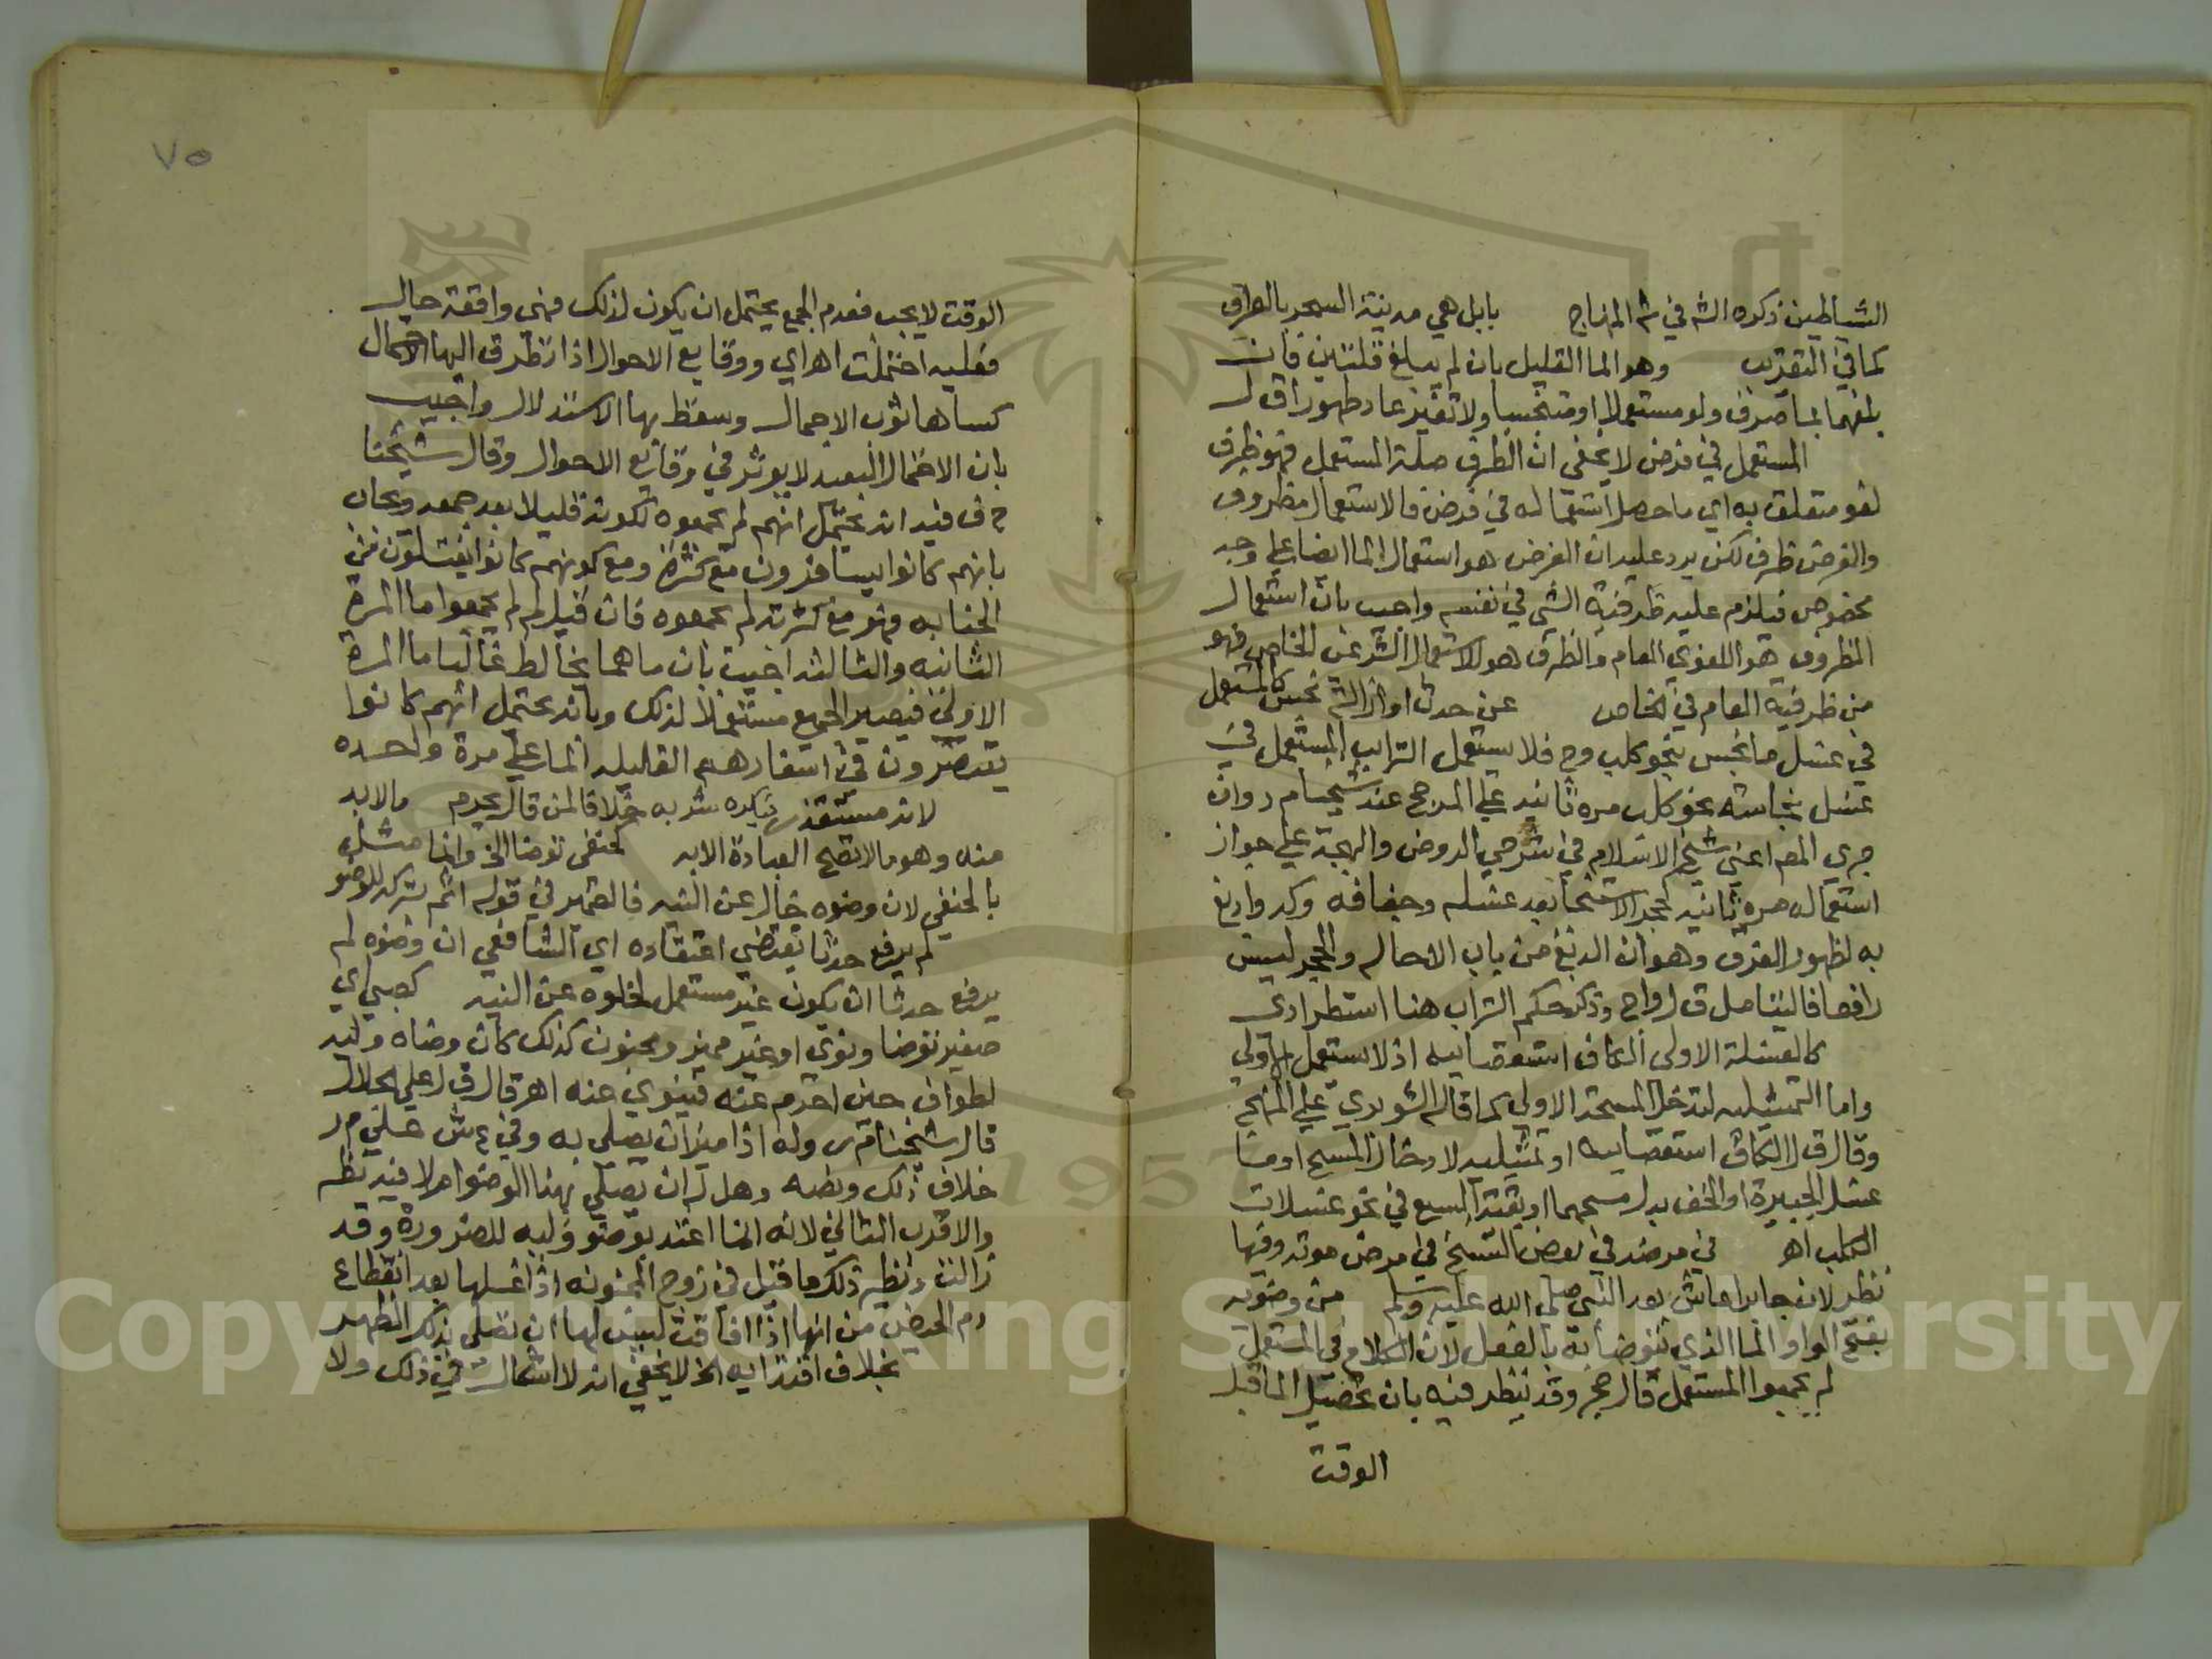 الشياطين ذكره الشه في شه المنهاج بابل هي مدينة السحر بالعراق
كما في التقريب وهو الماالقليل بان لم يبلغ قلتين فان
بلغهما بما صرف ولو مستعملا او متنجسا ولا تغير عاد طهورا ق ل
المستعمل في فرض لا يخفى ان الظرف صلة المستعمل فهو ظرف
لغو متعلق به اي ما حصل استعماله في فرض فالاستعمال مظروف
والفرض ظرف لكن يرد عليه ان الفرض هو استعمال الما ايضا علي وجه
مخصوص فيلزم عليه ظرفية الشي في نفسه واجيب بان استعمال
المظروف هو اللغوي العام والظرف هو الاستعمال الشرعي الخاص فهو
من ظرفية العام في الخاص عن حدث او ازالة نجس كالمستعمل
في غسل ما نجس بنحو كلب وح فلا يستعمل التراب المستعمل في
غسل نجاسة نحو كلب مره ثانيه علي المرجح عند شيخنا م ر وان
جري المص اعني شيخ الاسلام في شرحي الروض والبهجة علي جواز
استعماله مره ثانيه كحجر الاستنجا بعد غسله وجفافه وكدوا دبغ
به لظهور الفرق وهو ان الدبغ من باب الاحاله والحجر ليس
رافعا فاليتامل ق ل و اج وذكر حكم التراب هنا استطرادي
كالغسلة الاولى الكاف استقصاييه اذ لا مستعمل الا الاولي
واما التمثيليه لتدخل المسحة الاولي كما قاله الشوبري علي المنهج
وقال ق ل الكاف استقصاييه او تمثيليه لادخال المسح او ما
غسل الجبيرة او الخف بدل مسحهما او بقية السبع في نحو غسلات
الكلب اهـ في مرضه في بعض النسخ في مرض موته وفيها
نظر لان جابرا عاش بعد النبي صلي الله عليه وسلم من وضويه
بفتح الواو الما الذي يتوضا به بالفعل لان الكلام في المستعمل
لم يجمعوا المستعمل قال حج وقد ينظر فيه بان تحصيل الما قبل
الوقت
٧٥
الوقت لا يجب فعدم الجمع يحتمل ان يكون لذلك فهي واقعة حال
فعليه احتملت اهـ اي ووقايع الاحوال اذا تطرق اليها الاحتمال
كساها ثوب الاجمال وسقط بها الاستدلال واجيب
بان الاحتمال البعيد لا يوثر في وقايع الاحوال وقال شيخنا
ح ف فيه انه يحتمل انهم لم يجمعوه لكونه قليلا بعد جمعه ويجاب
بانهم كانوا يسافرون مع كثرة ومع كونهم كانوا يغتسلون من
الجنابه فهو مع كثرته لم يجمعوه فان قيل لم لم يجمعوا ما المرة
الثانيه والثالثه اجيب بان ماهما يخالط غالبا ما المرة
الاولي فيصير الجميع مستعملا لذلك وبانه يحتمل انهم كانوا
يقتصرون في اسفارهم القليله الما علي مرة واحده
لانه مستقذر فيكره شربه خلافا لمن قال يحرم مالابد
منه وهو ما لا تصح العبادة الا به كحنفي توضا الخ وانما مثل
بالحنفي لان وضوه خال عن النيه فالضمير في قوله اثم بتركه للوضو
لم يرفع حدثا يقتضي اعتقاده اي الشافعي ان وضوه لم
يرفع حدثا ان يكون غير مستعمل لخلوه عن النيه كصبي اي
صغير توضا ونوي او غير مميز ومجنون كذلك كان وضاه وليه
لطواف حين احرم عنه فينوي عنه اهـ قال ق ل علي الجلال
قال شيخنا م ر وله اذا ميز ان يصلي به وفي ع ش علي م ر
خلاف ذلك ونصه وهل له ان يصلي بهذا الوضوا م لا فيه نظر
والاقرب الثاني لانه انما اعتد بوضو وليه للضرورة وقد
زالت ونظير ذلك ما قيل في زوج المجنونه اذا غسلها بعد انقطاع
دم الحيض من انها اذا افاقت ليس لها ان تصلي بذلك الطهر
بخلاف اقتدايه الخ لا يخفي انه لا اشكال في ذلك ولا